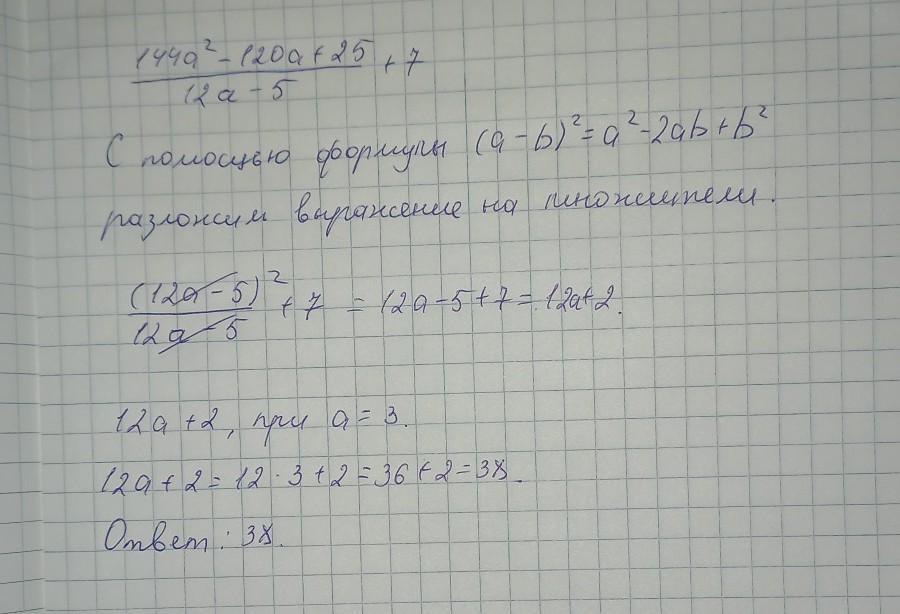 144a² - 120a + 25 / 12a - 5 + 7
С помощью формулы (a - b)² = a² - 2ab + b²
разложим выражение на множители.
(12a - 5)² / 12a - 5 + 7 = 12a - 5 + 7 = 12a + 2.
12a + 2, при a = 3.
12a + 2 = 12 · 3 + 2 = 36 + 2 = 38.
Ответ: 38.